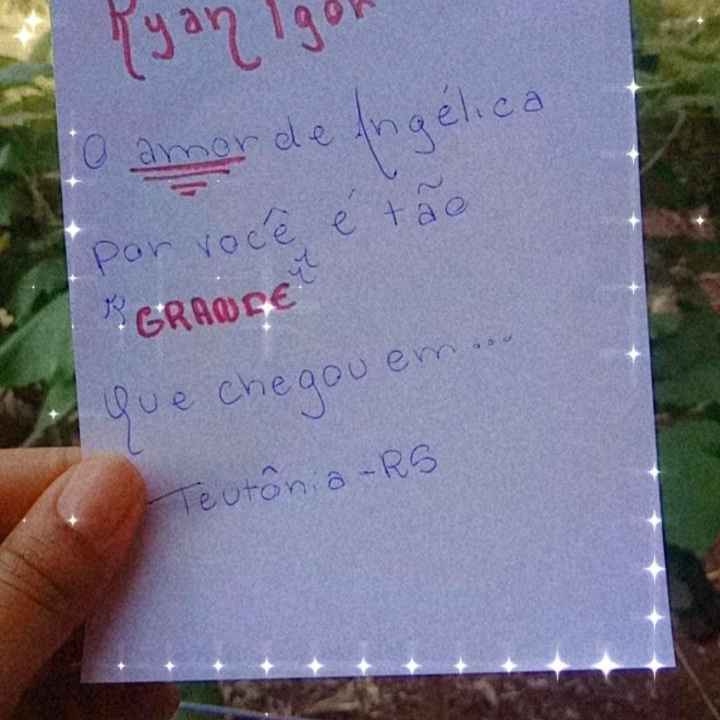 Ryan Igor
O amor de Angélica
por você é tão
GRANDE
Que chegou em...
Teutônia-RS